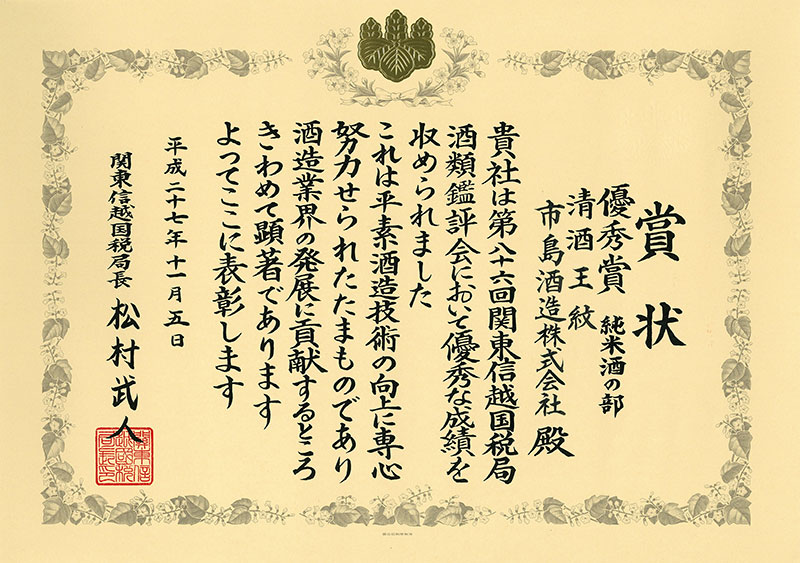 賞状
優秀賞 純米酒の部
清酒 王紋
市島酒造株式会社 殿
貴社は第八十六回関東信越国税局
酒類鑑評会において優秀な成績を
収められました
これは平素酒造技術の向上に専心
努力せられたたまものであり
酒造業界の発展に貢献するところ
きわめて顕著であります
よってここに表彰します
平成二十七年十一月五日
関東信越国税局長 松村武人